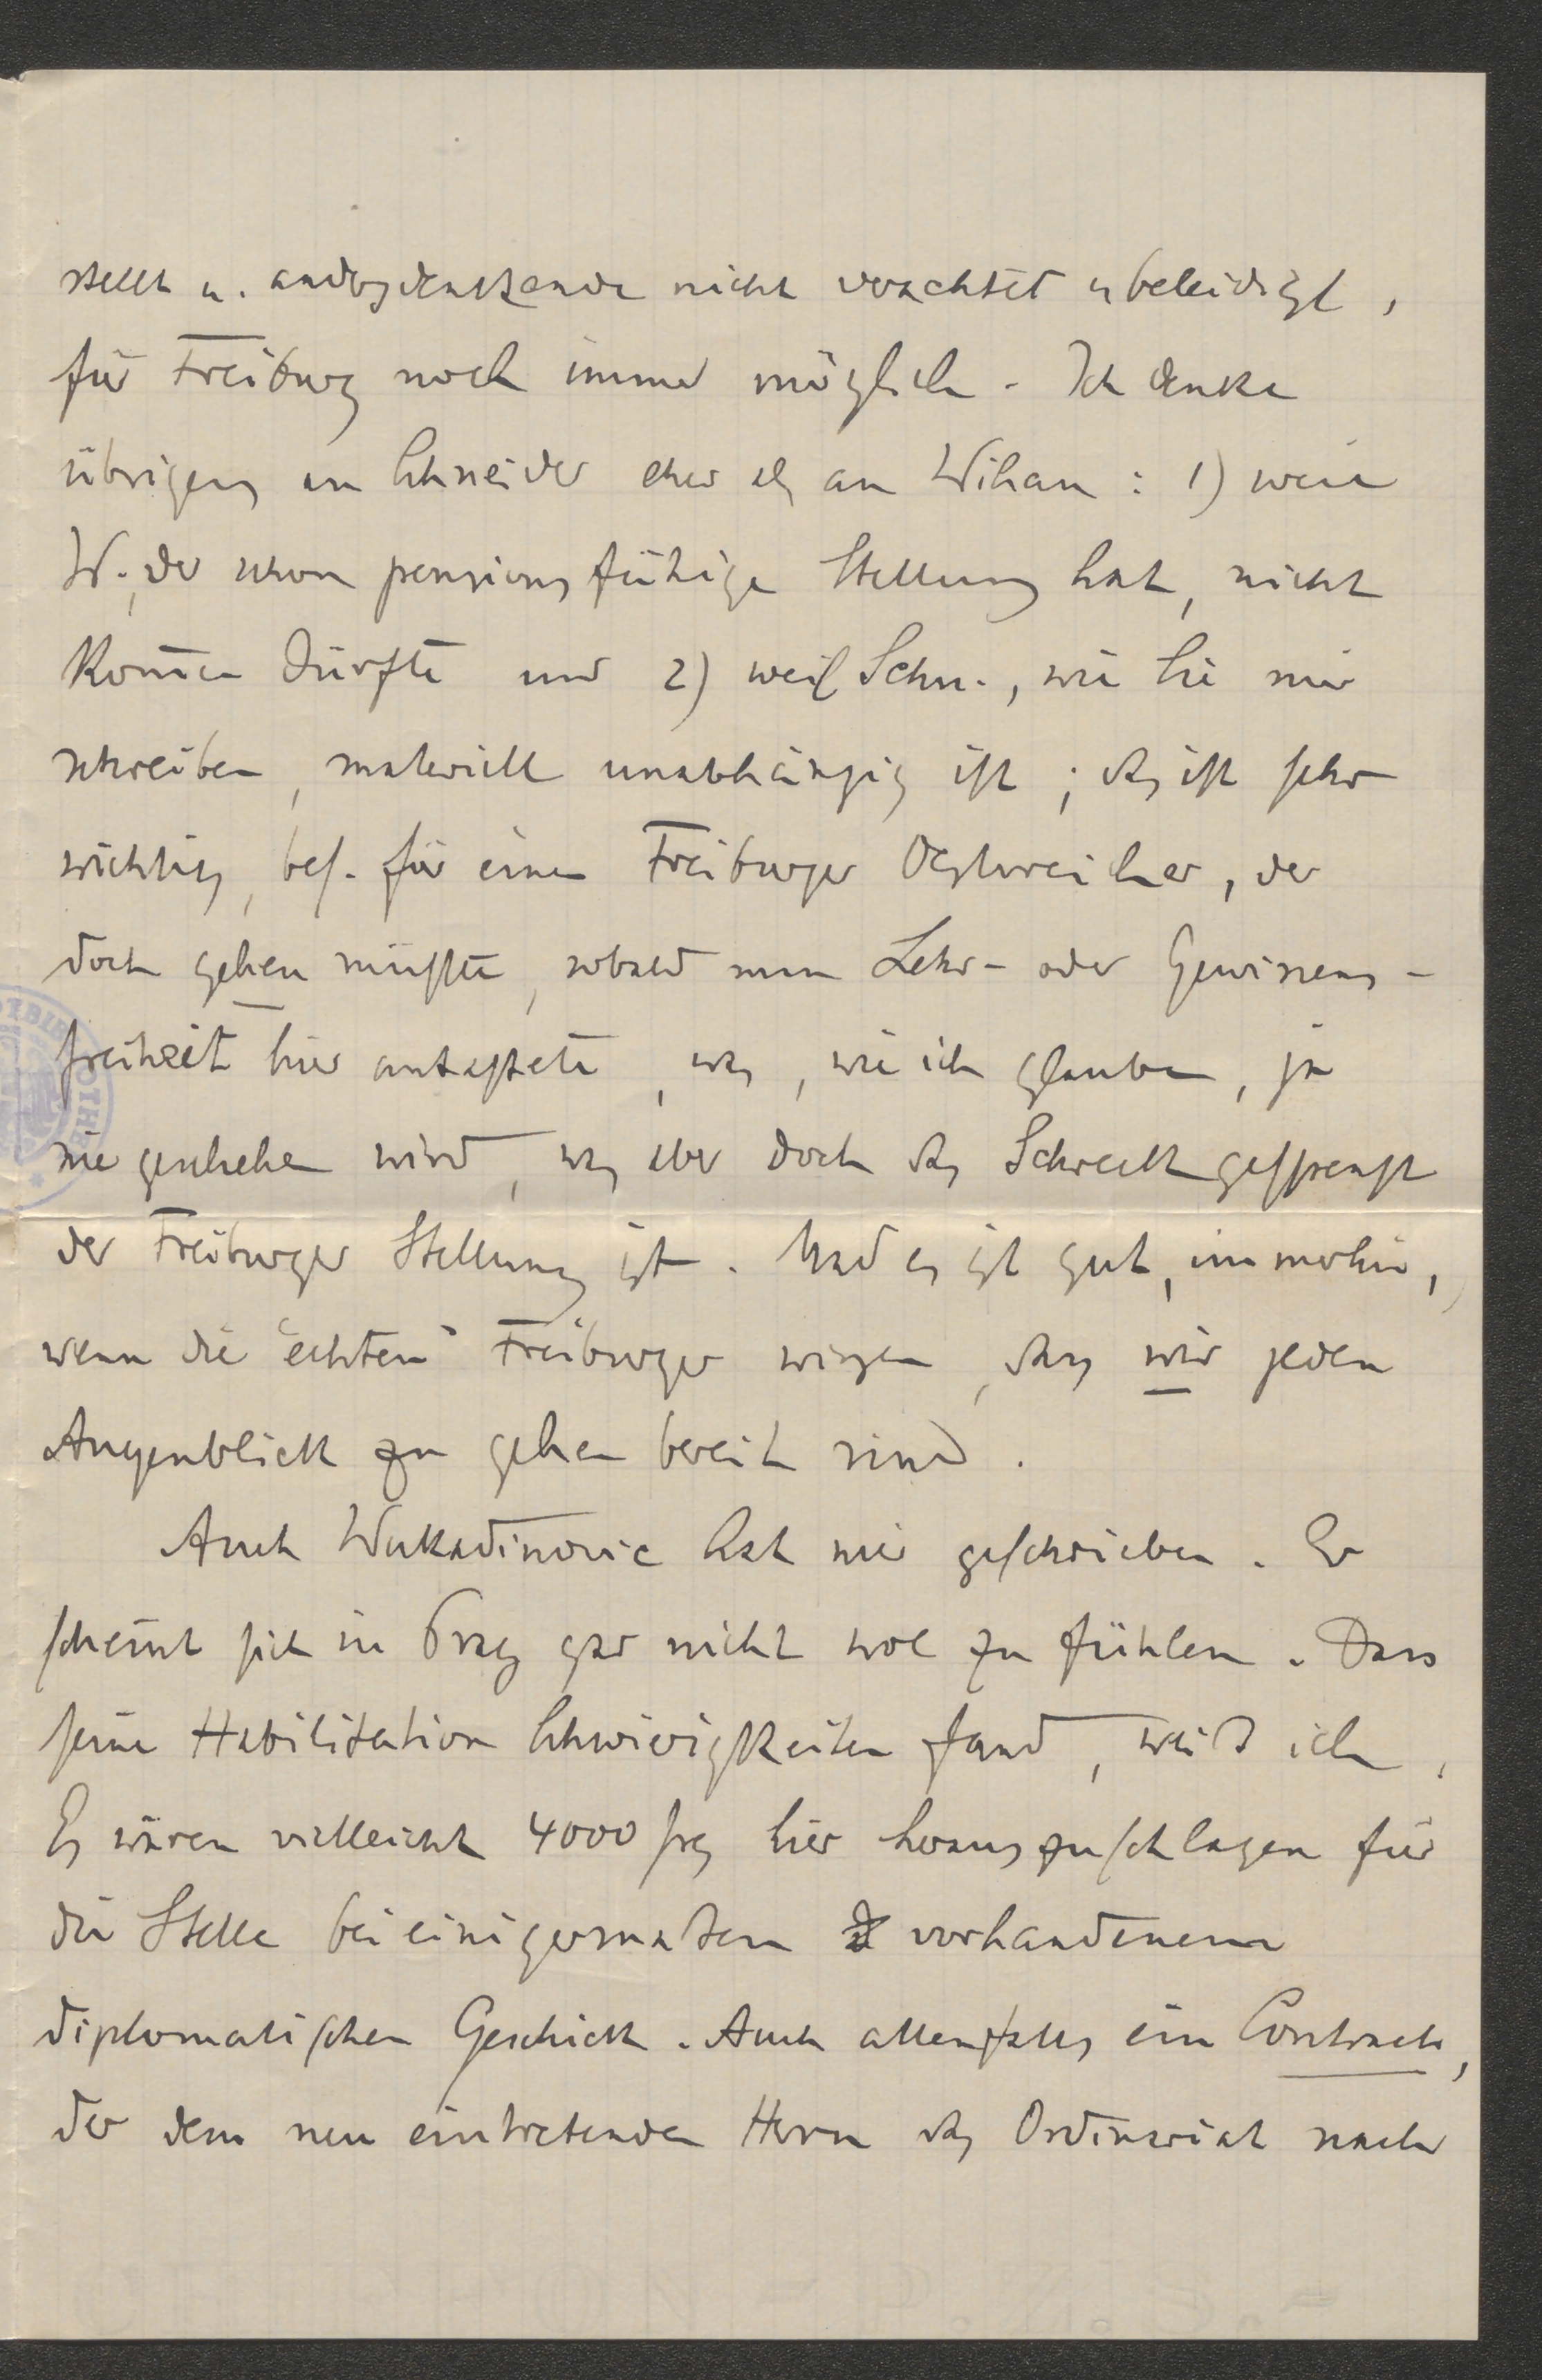 stellt u. andersdenkende nicht verachtet u beleidigt,
für Freiburg noch immer möglich. Ich denke
übrigens an Schneider eher als an Wihan: 1) weil
W., der schon pensionsfähige Stellung hat, nicht
kom̄en dürfte und 2) weil Schn., wie Sie mir
schreiben, materiell unabhängig ist; das ist sehr
wichtig, bes. für einen Freiburger Oestreicher, der
doch gehen müsste, sobald man Lehr- oder Gewissens-
freiheit hier antastete, was, wie ich glaube, ja
nie geschehen wird, was aber doch das Schreckgespenst
der Freiburger Stellung ist. Und es ist gut, immerhin,
wenn die "echten" Freiburger wissen, dass wir jeden
Augenblick zu gehen bereit sind.
Auch Wukadinovic hat mir geschrieben. Er
scheint sich in Prag gar nicht wol zu fühlen. Dass
seine Habilitation Schwierigkeiten fand, weiß ich.
Es wären vielleicht 4000 frs hier herauszuschlagen für
die Stelle bei einigermaßen vorhandenem
diplomatischen Geschick. Auch allenfalls ein Contract,
der dem neu eintretenden Herrn das Ordinariat nach